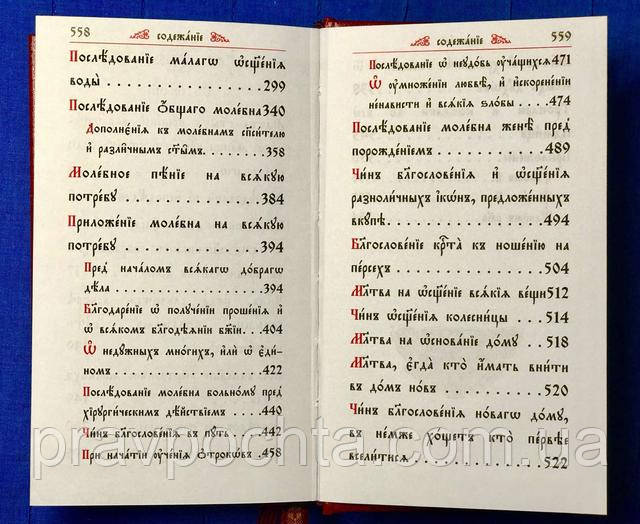 558
СОДЕЖА́НІЕ
Послѣ́дованіе ма́лагѡ ѡ҆сщ҃е́нїѧ
воды̀ . . . . . . . . . . . . . . 299
Послѣ́дованїе о҆́бщагѡ моле́бна 340
Дополне́нїѧ къ моле́бнамъ сп҃си́телю
и҆ разли́чнымъ ст҃ы̑мъ. . . . . . . 358
Моле́бное пѣ́нїе на всѧ́кую
потре́бу . . . . . . . . . . . . 384
Приложе́нїе моле́бна на всѧ́кую
потре́бу . . . . . . . . . . . . 394
Пред нача́ломъ всѧ́кагѡ до́брагѡ
дѣ́ла . . . . . . . . . . . . . . 394
Бл҃годаре́нїе ѡ҆ получе́нїи проше́нїѧ и҆
ѡ҆ всѧ́комъ бл҃годѣѧ́нїи бж҃їи. . . 404
Ѽ неду́жныхъ мно́гихъ, и҆лѝ ѡ҆ є҆ди́-
номъ . . . . . . . . . . . . . . 422
Послѣ́дованїе моле́бна больно́му пред
хїрурги́ческимъ дѣ́йствїемъ . . . . 440
Чи́нъ бл҃гослове́нїѧ въ пу́ть . . . 442
При нача́тїи ᲂу҆че́нїѧ ѻ҆́трокѡвъ . . 458
СОДЕЖА́НІЕ
559
Послѣ́дованїе ѡ҆ неꙋдо́бь ᲂу҆ча́щихсѧ 471
Ѽ ᲂу҆множе́нїи любвѐ, и҆ и҆скорене́нїи
не́нависти и҆ всѧ́кїѧ ѕло́бы . . . . 474
Послѣ́дованїе моле́бна женѣ̀ пред
порожде́нїемъ . . . . . . . . . . 489
Чи́нъ бл҃гослове́нїѧ и҆ ѡ҆сщ҃е́нїѧ
разноли́чныхъ і҆кѡ́нъ, предложе́нныхъ
вкꙋ́пѣ . . . . . . . . . . . . . 494
Бл҃гослове́нїе крⷭ҇та̀ къ ноше́нїю на
пе́рсехъ . . . . . . . . . . . . 504
Мл҃тва на ѡ҆сщ҃е́нїе всѧ́кїѧ ве́щи 512
Чи́нъ ѡ҆сщ҃е́нїѧ колесни́цы . . . . 514
Мл҃тва на ѡ҆снова́нїе до́мꙋ . . . 518
Мл҃тва, є҆гда̀ кто̀ и҆́мать вни́ти
въ до́мъ но́въ . . . . . . . . . . 520
Чи́нъ бл҃гослове́нїѧ но́вагѡ до́мꙋ,
въ не́мже хо́щетъ кто̀ пе́рвѣе
всели́тисѧ . . . . . . . . . . . . 522
pravpochta.com.ua